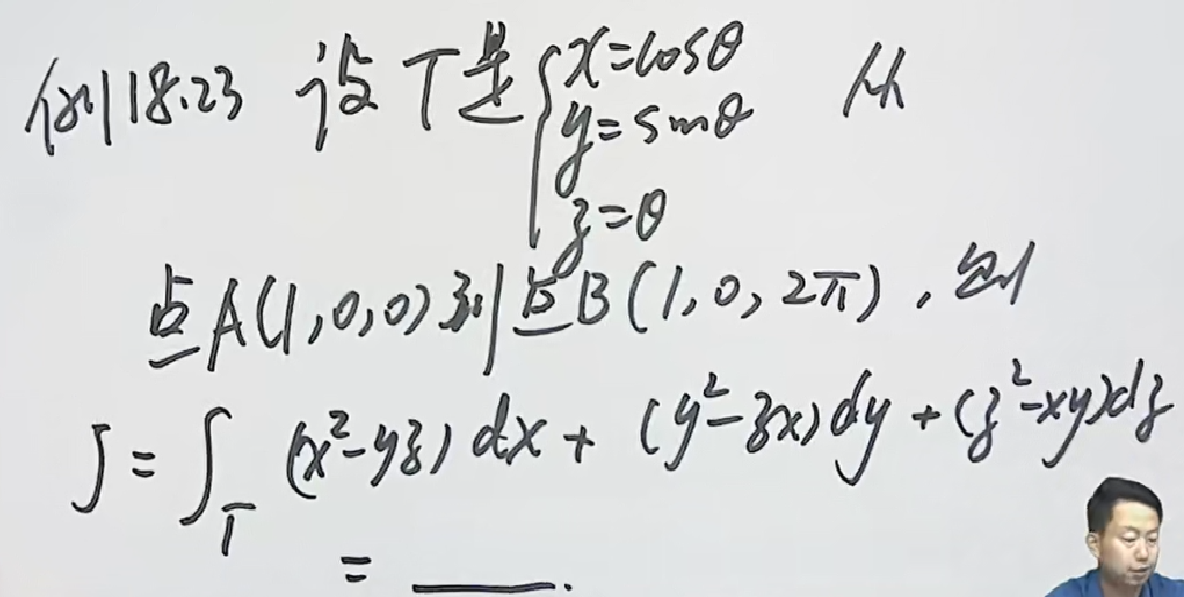 例18.23 设Γ是{x=cosθ 从
y=sinθ
z=θ
点A(1,0,0)到点B(1,0,2π),则
J=∫_Γ (x²-yz)dx+(y²-zx)dy+(z²-xy)dz
=____.